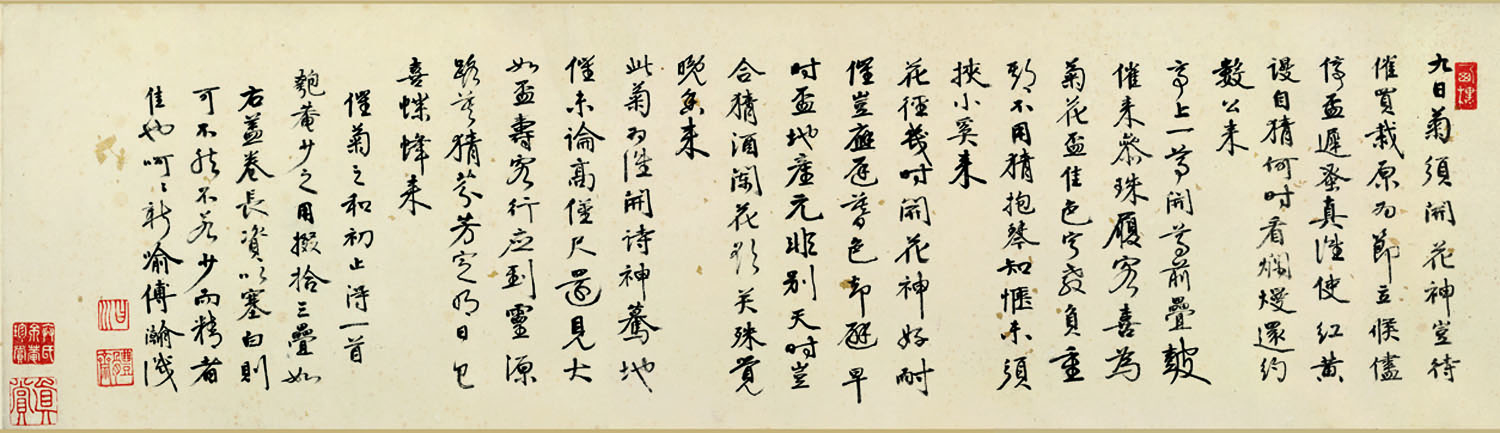 九日菊須開花神豈待
催買栽原為節立候儘
停盃遲發真誰使紅黃
謾自猜何時看爛熳還約
數公来
亭上一尊開尊前疊皷
催来參珠履客喜為
菊花盃佳色寧教負重
頭不用猜抱琴知愜未須
挾小奚来
花徑幾時開花神好耐
催豈應遲暮色却避早
時盃地產元非別天時豈
合猜酒闌花欲笑殊覺
晚香来
此菊為誰開詩神驀地
催未論高僅尺還見大
如盃壽客行应到靈源
路莫猜芬芳定明日已
喜蝶蜂来
催菊之和初止得一首
匏菴少之用掇拾三疊如
右蓋卷長資以塞白則
可不然不若少而精者
佳也呵〻新喻傅瀚識
真賞